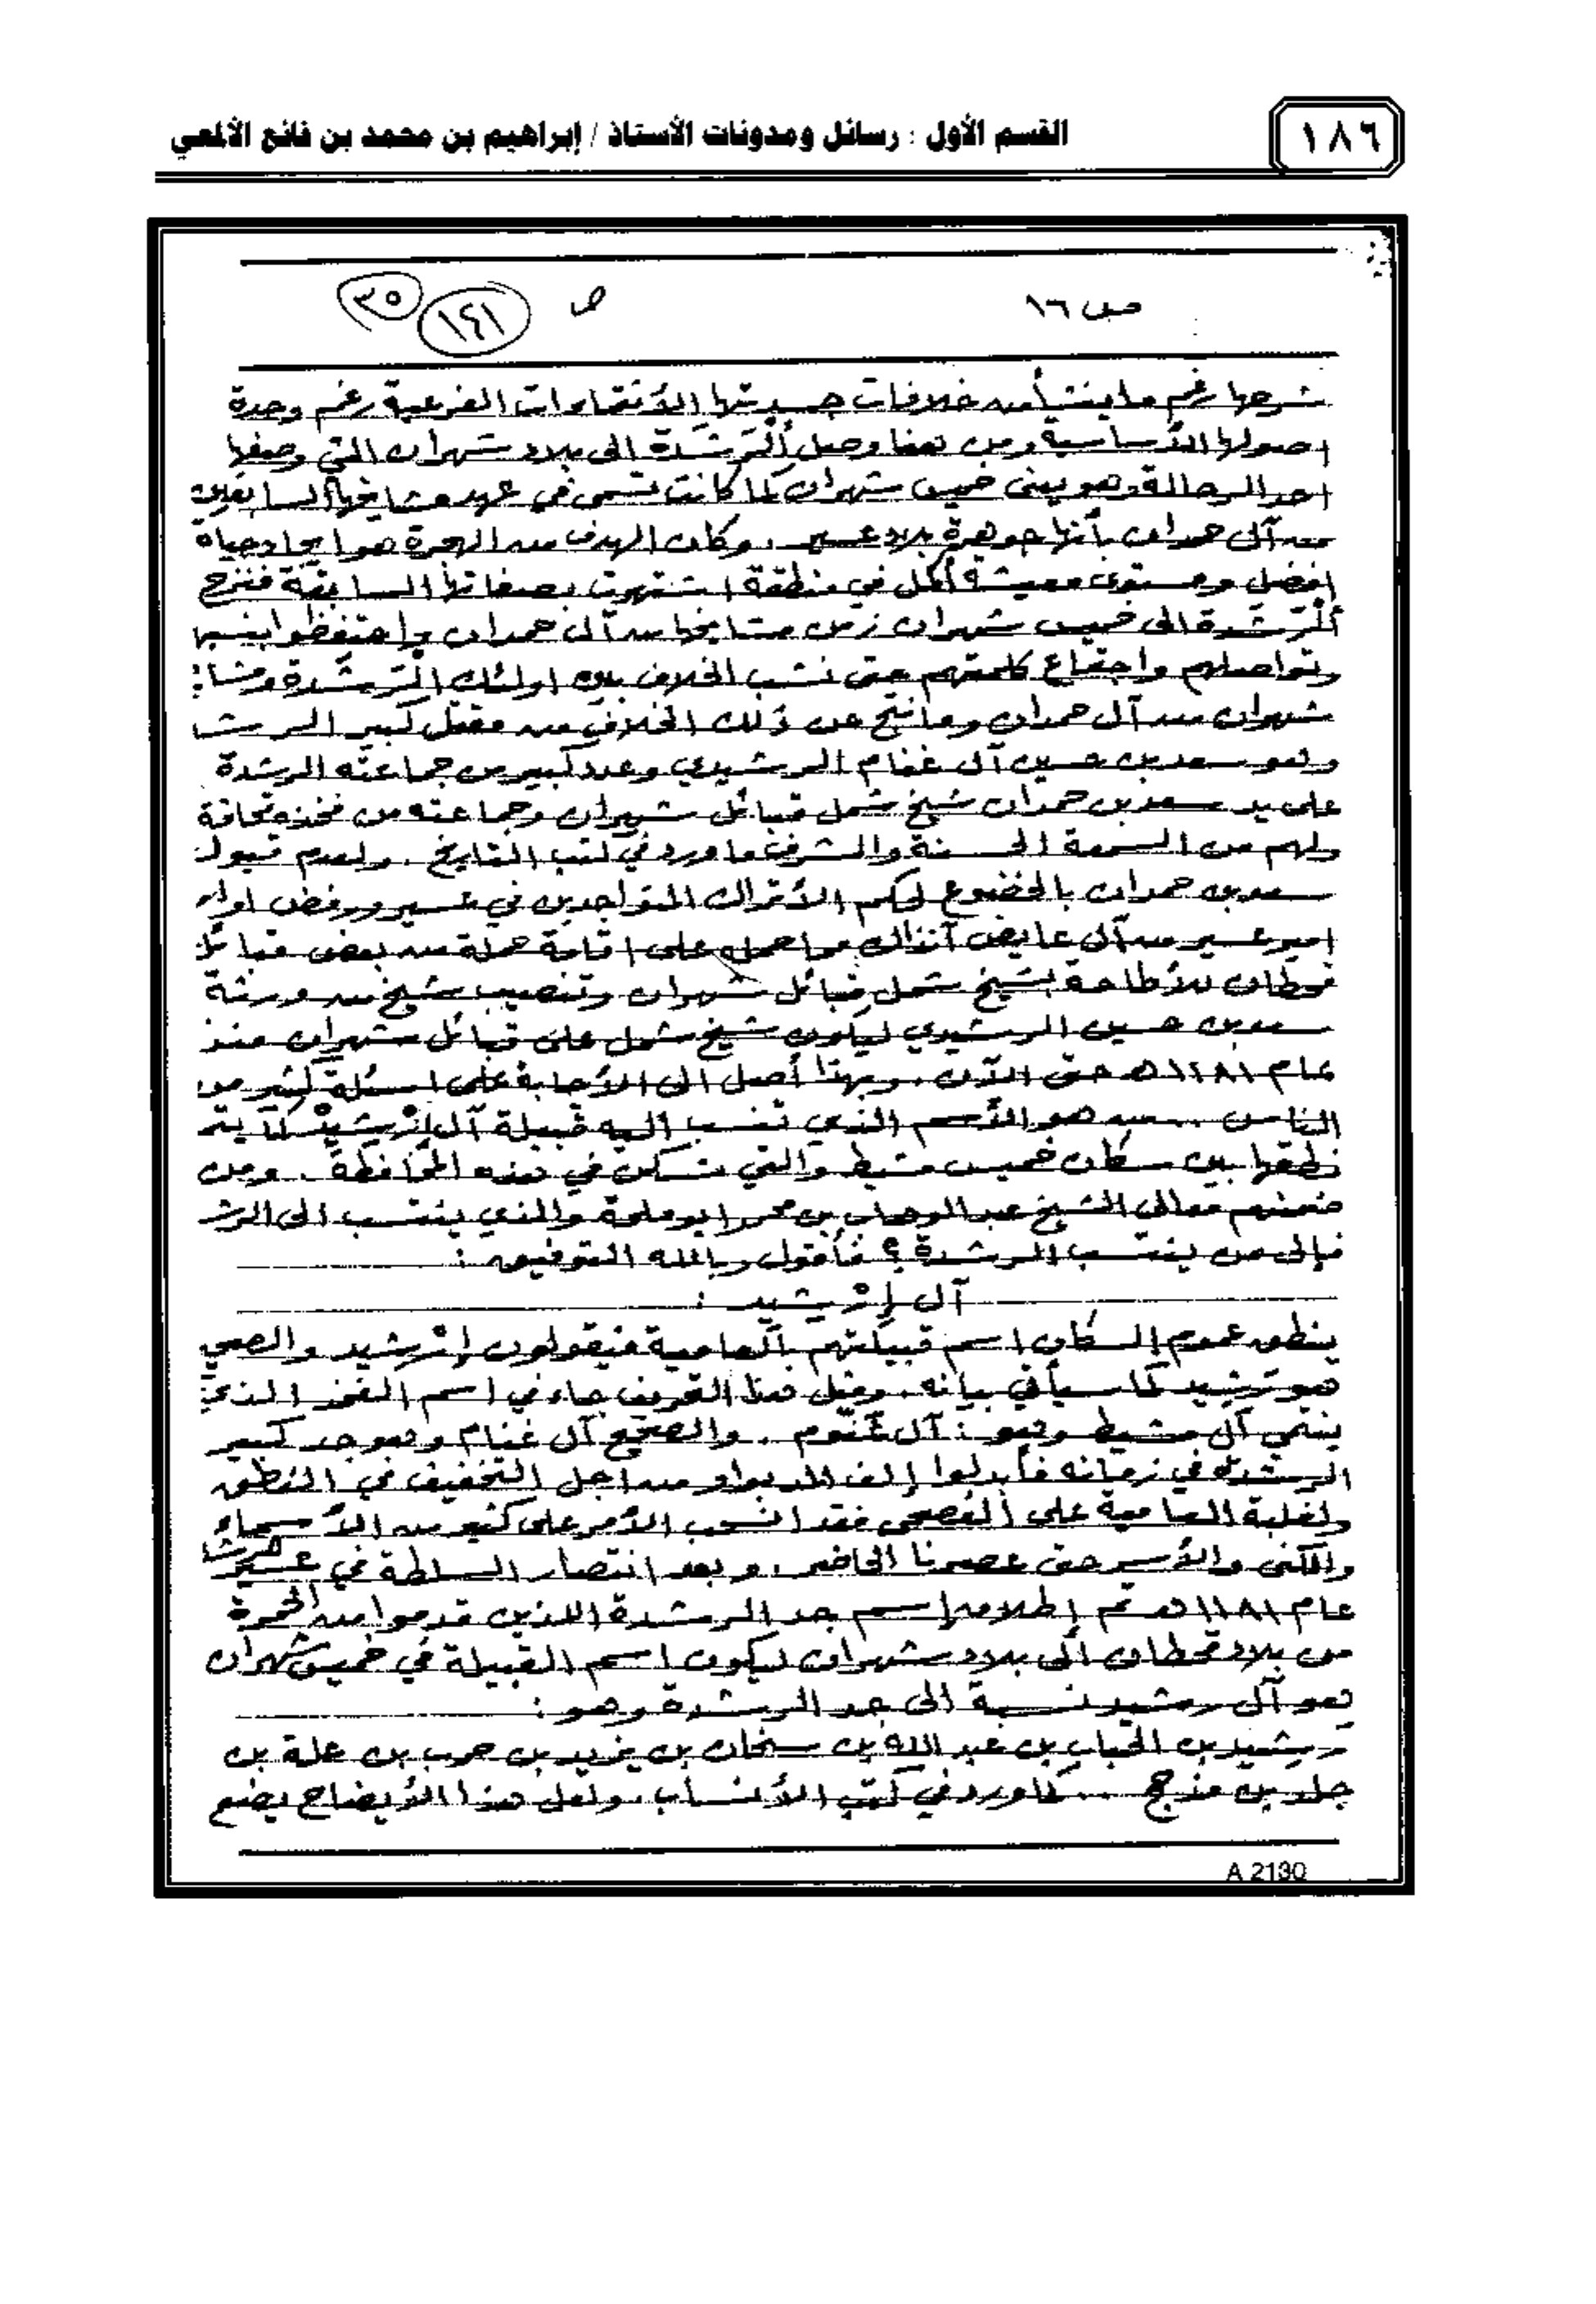 ١٨٦
القسم الأول : رسائل ومدونات الأستاذ / إبراهيم بن محمد بن فائع الألمعي
ص ١٦
ص ١٤١ ٣٥
شرحها رغم ما ينشأ من خلافات جسدتها الأنتماءات الفرعية رغم وحدة
اصولها الأساسية ومن هنا وصل الرشدة الى بلاد شهران التي وصفها
احد الرحالة وهو يعني خميس شهران كما كانت تسمى في عهد مشايخها السابقين
من آل حمدان بأنها جوهرة بلاد عسير . وكان الهدف من الهجرة هو ايجاد حياة
افضل ومستوى معيشة أكمل في منطقة اشتهرت بصفاتها السابقة فنزح
الرشدة الى خميس شهران زمن مشايخها من آل حمدان واحتفظوا بنسبها
وتواصلهم واجتماع كلمتهم حتى نشب الخلاف بين اولئك الرشدة ومشايخ
شهران من آل حمدان وما نتج عن ذلك الخلاف من مقتل كبير
وهو سعد بن حسين آل غنام الرشيدي وعدد كبير من جماعته الرشدة
على يد سعد بن حمدان شيخ شمل قبائل شهران وجماعته من فخذه قحافة
ولهم من السمعة الحسنة والشرف ما ورد في كتب التاريخ . ولعدم قبول
سعد بن حمدان بالخضوع لحكم الأتراك المتواجدين في عسير ورفض
امير عسير من آل عايض آنذاك مما حمله على اقامة حملة من بعض قبائل
قحطان للأطاحة بشيخ شمل قبائل شهران وتنصيب شيخ من ورثة
سعد بن حسين الرشيدي ليكون شيخ شمل على قبائل شهران منذ
عام ١٢٨١هـ حتى الآن . وبهذا أصل الى الأجابة على اسئلة كثير من
الناس .. من هو الأسم الذي تنسب اليه قبيلة آل إرشيد كما يتم
نطقها بين سكان خميس مشيط والتي تسكن في هذه المحافظة . ومن
ضمنهم معالي الشيخ عبد الوهاب بن محمد ابو ملحة والذي ينتسب الى
فإلى من ينتسب الرشدة ؟ فأقول وبالله التوفيق :
آل إرشيد :
ينطق عموم السكان اسم قبيلتهم بالعامية فيقولون إرشيد والصحيح
هو رشيد كما سيأتي بيانه . ومثل هذا التحريف جاء في اسم الفخذ الذي
ينتمي آل مشيط وهو : آل غنوم . والصحيح آل غنام وهو جد كبير
الرشدة في زمانه فأبدلوا إلف المد بواو من اجل التخفيف في النطق
ولغلبة العامية على الفصحى فقد انسحب الأمر على كثير من الأسماء
والكنى والأسر حتى عصرنا الحاضر . وبعد انتصار السلطة في عسير
عام ١١٨١هـ تم إطلاق إسم جد الرشدة اللذين قدموا من الحمرة
من بلاد قحطان الى بلاد شهران ليكون اسم القبيلة في خميس شهران
هو آل رشيد نسبة الى جد الرشدة وهو :
رشيد بن الحباب بن عبد الله بن سنحان بن يزيد بن حرب بن علة بن
جلد بن مذحج ... كما ورد في كتب الأنساب . ولعل هذا الأيضاح يضع
A 2130